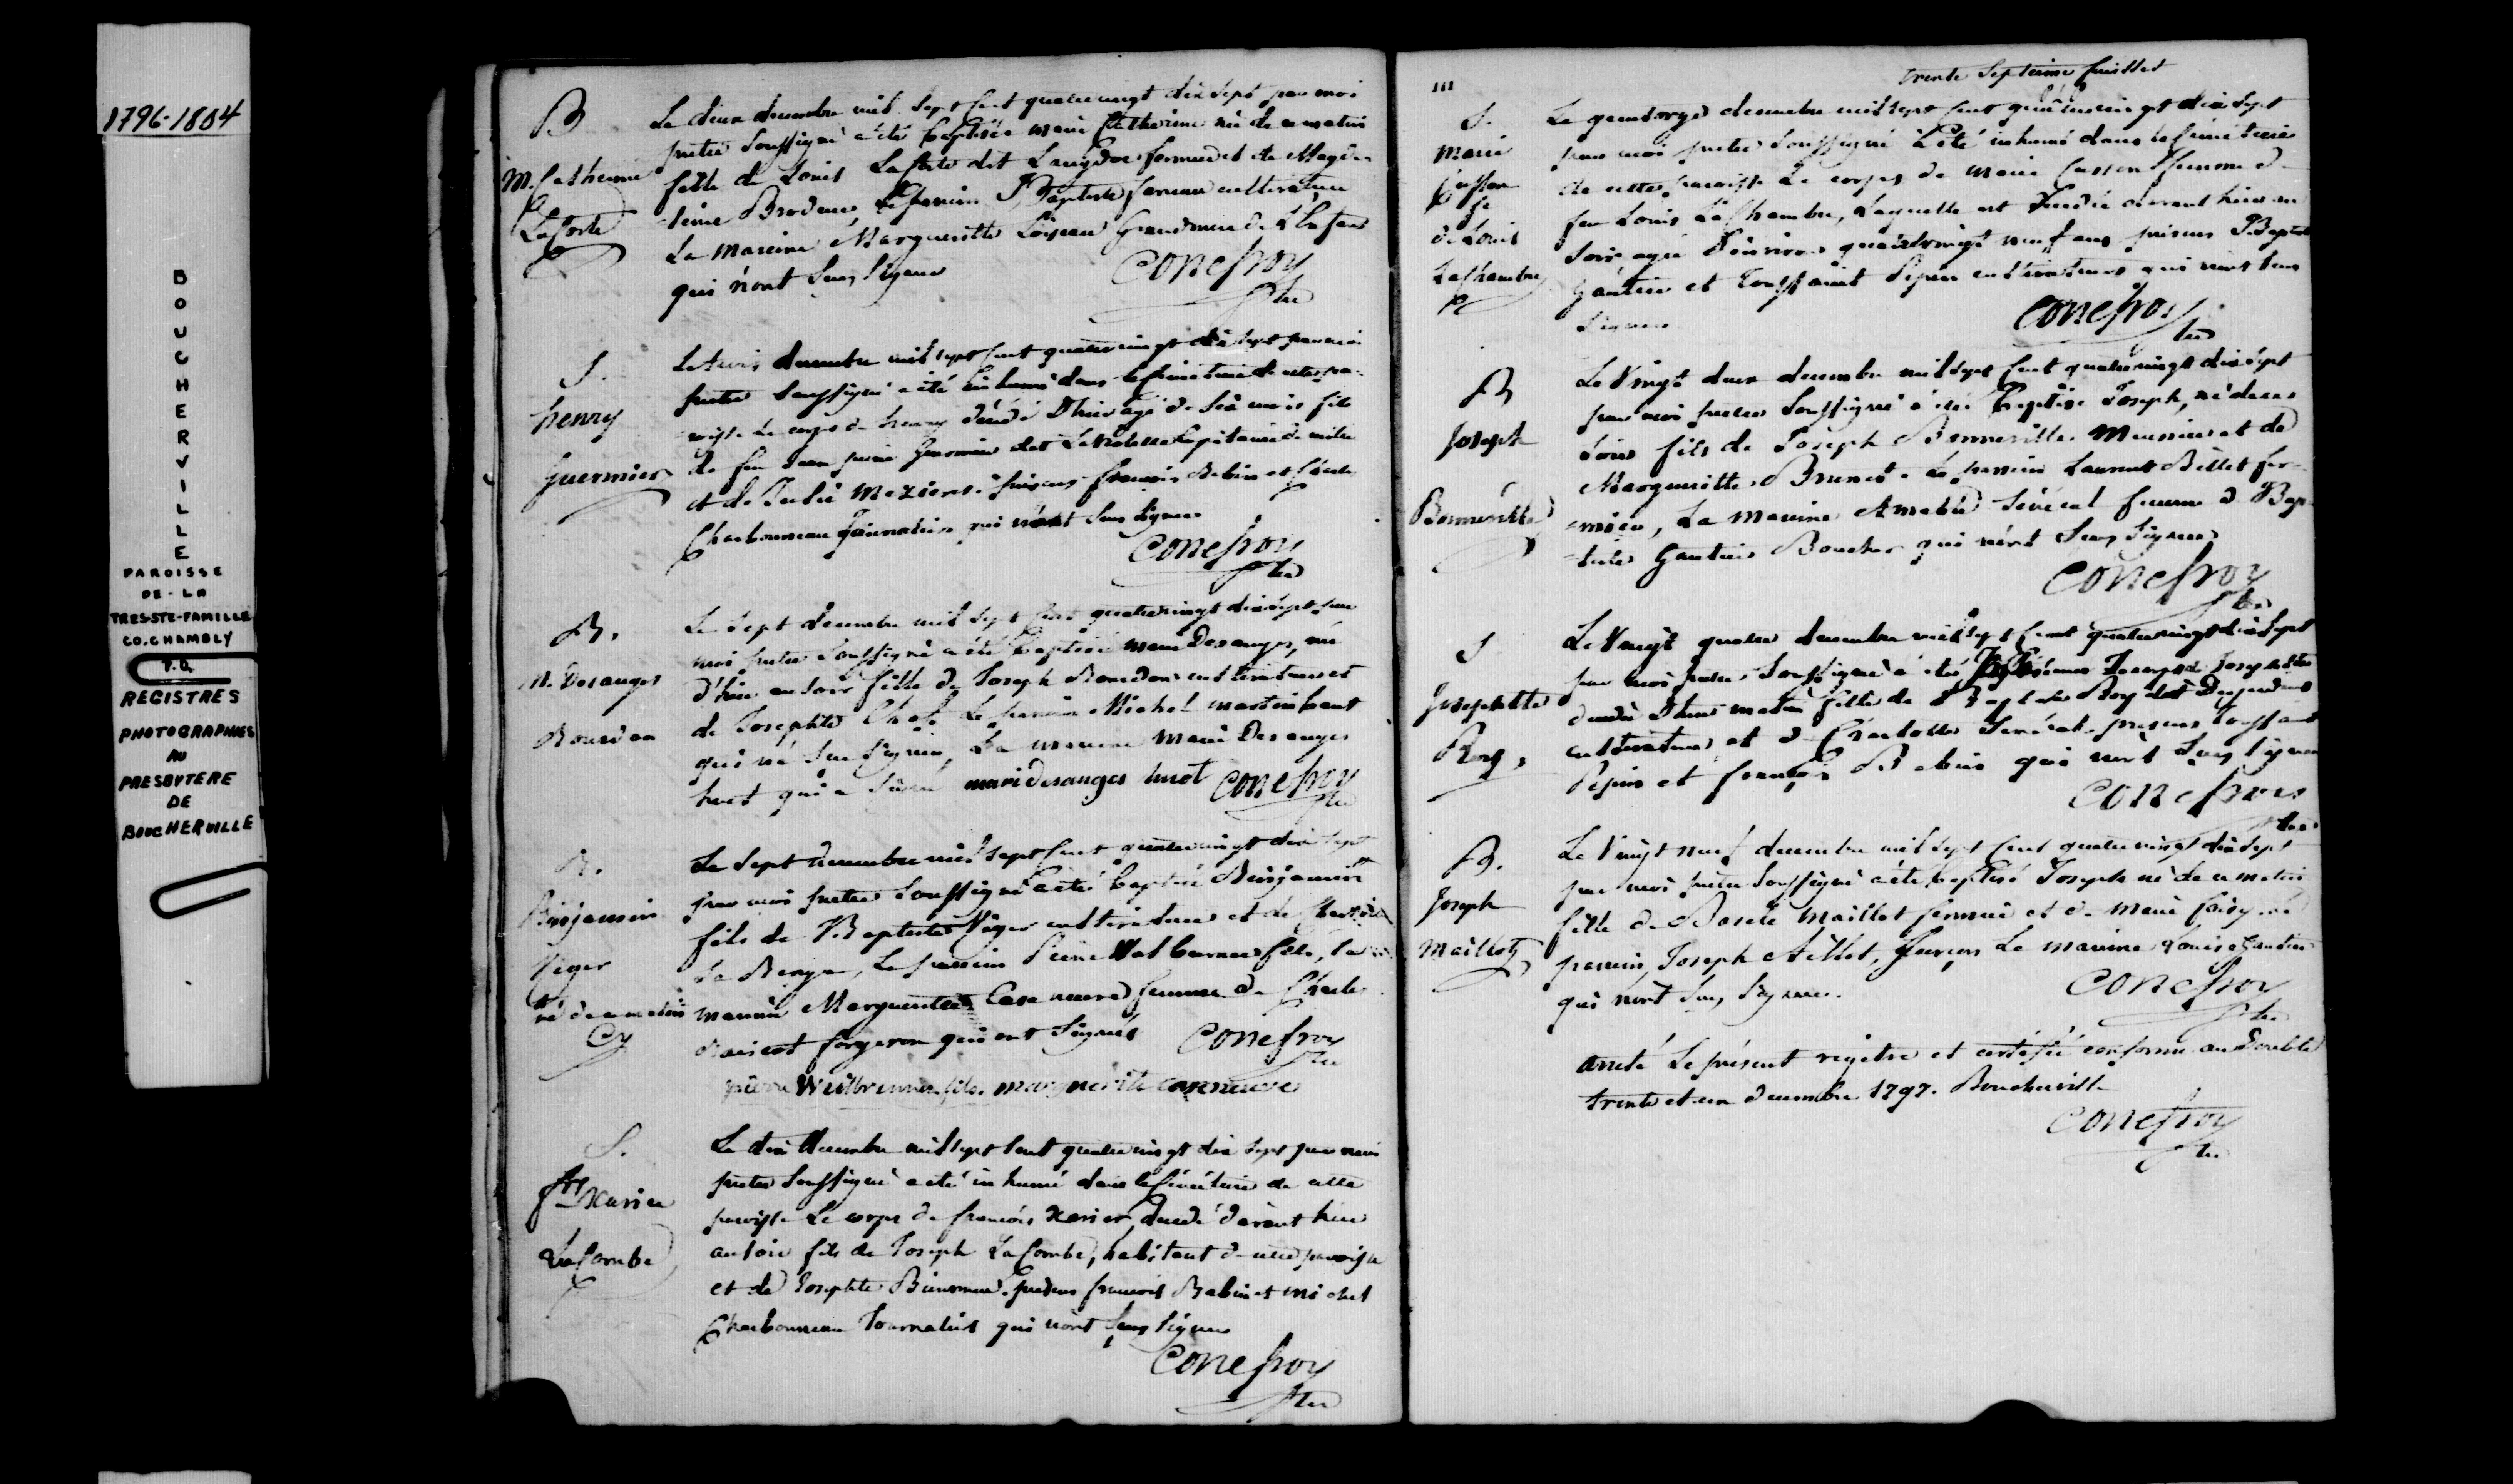 1796-1884
BOUCHERVILLE
PAROISSE
DE-LA
TRES-STE-FAMILLE
CO. CHAMBLY
P.Q.
REGISTRES
PHOTOGRAPHIES
AU
PRESBYTERE
DE
BOUCHERVILLE
B
M. Catherine
LaPorte
Le deux decembre mil sept cent quatrevingt dix sept par moi
pretre soussigné a été baptisée marie Catherine née de ce matin
fille de Louis LaPorte dit fermier et de Magde-
leine Brodeur, Le parain J Baptiste cultivateur
La Mareine Marguerite Loiseau Grandmere de l'Enfant
qui n'ont sçus signer
Conefroy
ptre
S.
henry
Guermier
Le trois decembre mil sept cent quatrevingt dix sept par moi
pretre soussigné a été inhumé dans le cimetiere de cette pa-
roisse Le corps de henry décédé D'hier agé de six mois fils
de feu Jean pierre dit Capitaine de milice
et de Julie Meziere. présens françois Babin et
Charbonneau Journaliers qui n'ont sçus signer
Conefroy
ptre
B.
M. Desanges
Bourdon
Le sept decembre mil sept cent quatrevingt dix sept par
moi pretre soussigné a été baptisée marie Desanges, née
d'hier au soir fille de Joseph Bourdon cultivateur et
de Josephte Le parain Michel
qui n'a sçu signer, La mareine Marie Desanges
huet qui a signé marie desanges huot Conefroy
ptre
B.
Benjamin
Viger
né de ce matin
Le sept decembre mil sept cent quatrevingt dix sept
par moi pretre soussigné a été baptisé Benjamin
fils de J Baptiste Viger cultivateur et de
La Berge, Le parain Pierre fils, la
mareine Marguerite Caseneuve femme de Charles
forgeron qui ont signés Conefroy
ptre
pierre Weilbrenner fils. marguerite caseneuve
S.
fs Xavier
LaCombe
Le dix decembre mil sept cent quatrevingt dix sept par moi
pretre soussigné a été inhumé dans le cimetiere de cette
paroisse Le corps de françois Xavier, decedé d'avant hier
au soir fils de Joseph LaCombe, habitant de cette paroisse
et de Josephte Bienvenue. présens françois Babin et michel
Charbonneau Journaliers qui n'ont sçus signer
Conefroy
ptre
trente septieme feuillet
S.
Marie
Casson
fe
de Louis
LaChambre
Le quatorze decembre mil sept cent quatrevingt dix sept
par moi pretre soussigné à été inhumé dans le cimetiere
de cette paroisse Le corps de marie Casson femme de
feu Louis LaChambre, Laquelle est decédée d'avant hier au
soir agée d'environ quatrevingt neuf ans présens J. Baptiste
Gautier et Toussaint Pepin cultivateurs qui n'ont sçus
signer
Conefroy
ptre
B
Joseph
Bonneville
Le vingt deux decembre mil sept cent quatrevingt dix sept
par moi pretre soussigné a été baptisé Joseph, né de ce
soir fils de Joseph Bonneville Meunier et de
Marguerite Brunet. Le parain Laurent Billet fer-
mier, La mareine Amable Sénécal femme de J Bap-
tiste Gautier Boucher qui n'ont sçus signer
Conefroy
ptre
S
Josephte
Roy
Le vingt quatre decembre mil sept cent quatrevingt dix sept
par moi pretre soussigné a été Josephte
decedée D'hier matin fille de J Baptiste Roy dit Desjardins
cultivateur et de Charlotte Senécal. présens Toussaint
Pepin et françois Babin qui n'ont sçus signer
Conefroy
ptre
B.
Joseph
Maillot
Le vingt neuf decembre mil sept cent quatrevingt dix sept
par moi pretre soussigné a été baptisé Joseph né de ce matin
fille de Basile Maillot fermier et de marie
parain, Joseph Aillot, Garçon La mareine Louise Gautier
qui n'ont sçus signer.
Conefroy
ptre
arreté Le présent registre et certifié conforme au Double
trente et un decembre 1797. Boucherville
Conefroy
ptre